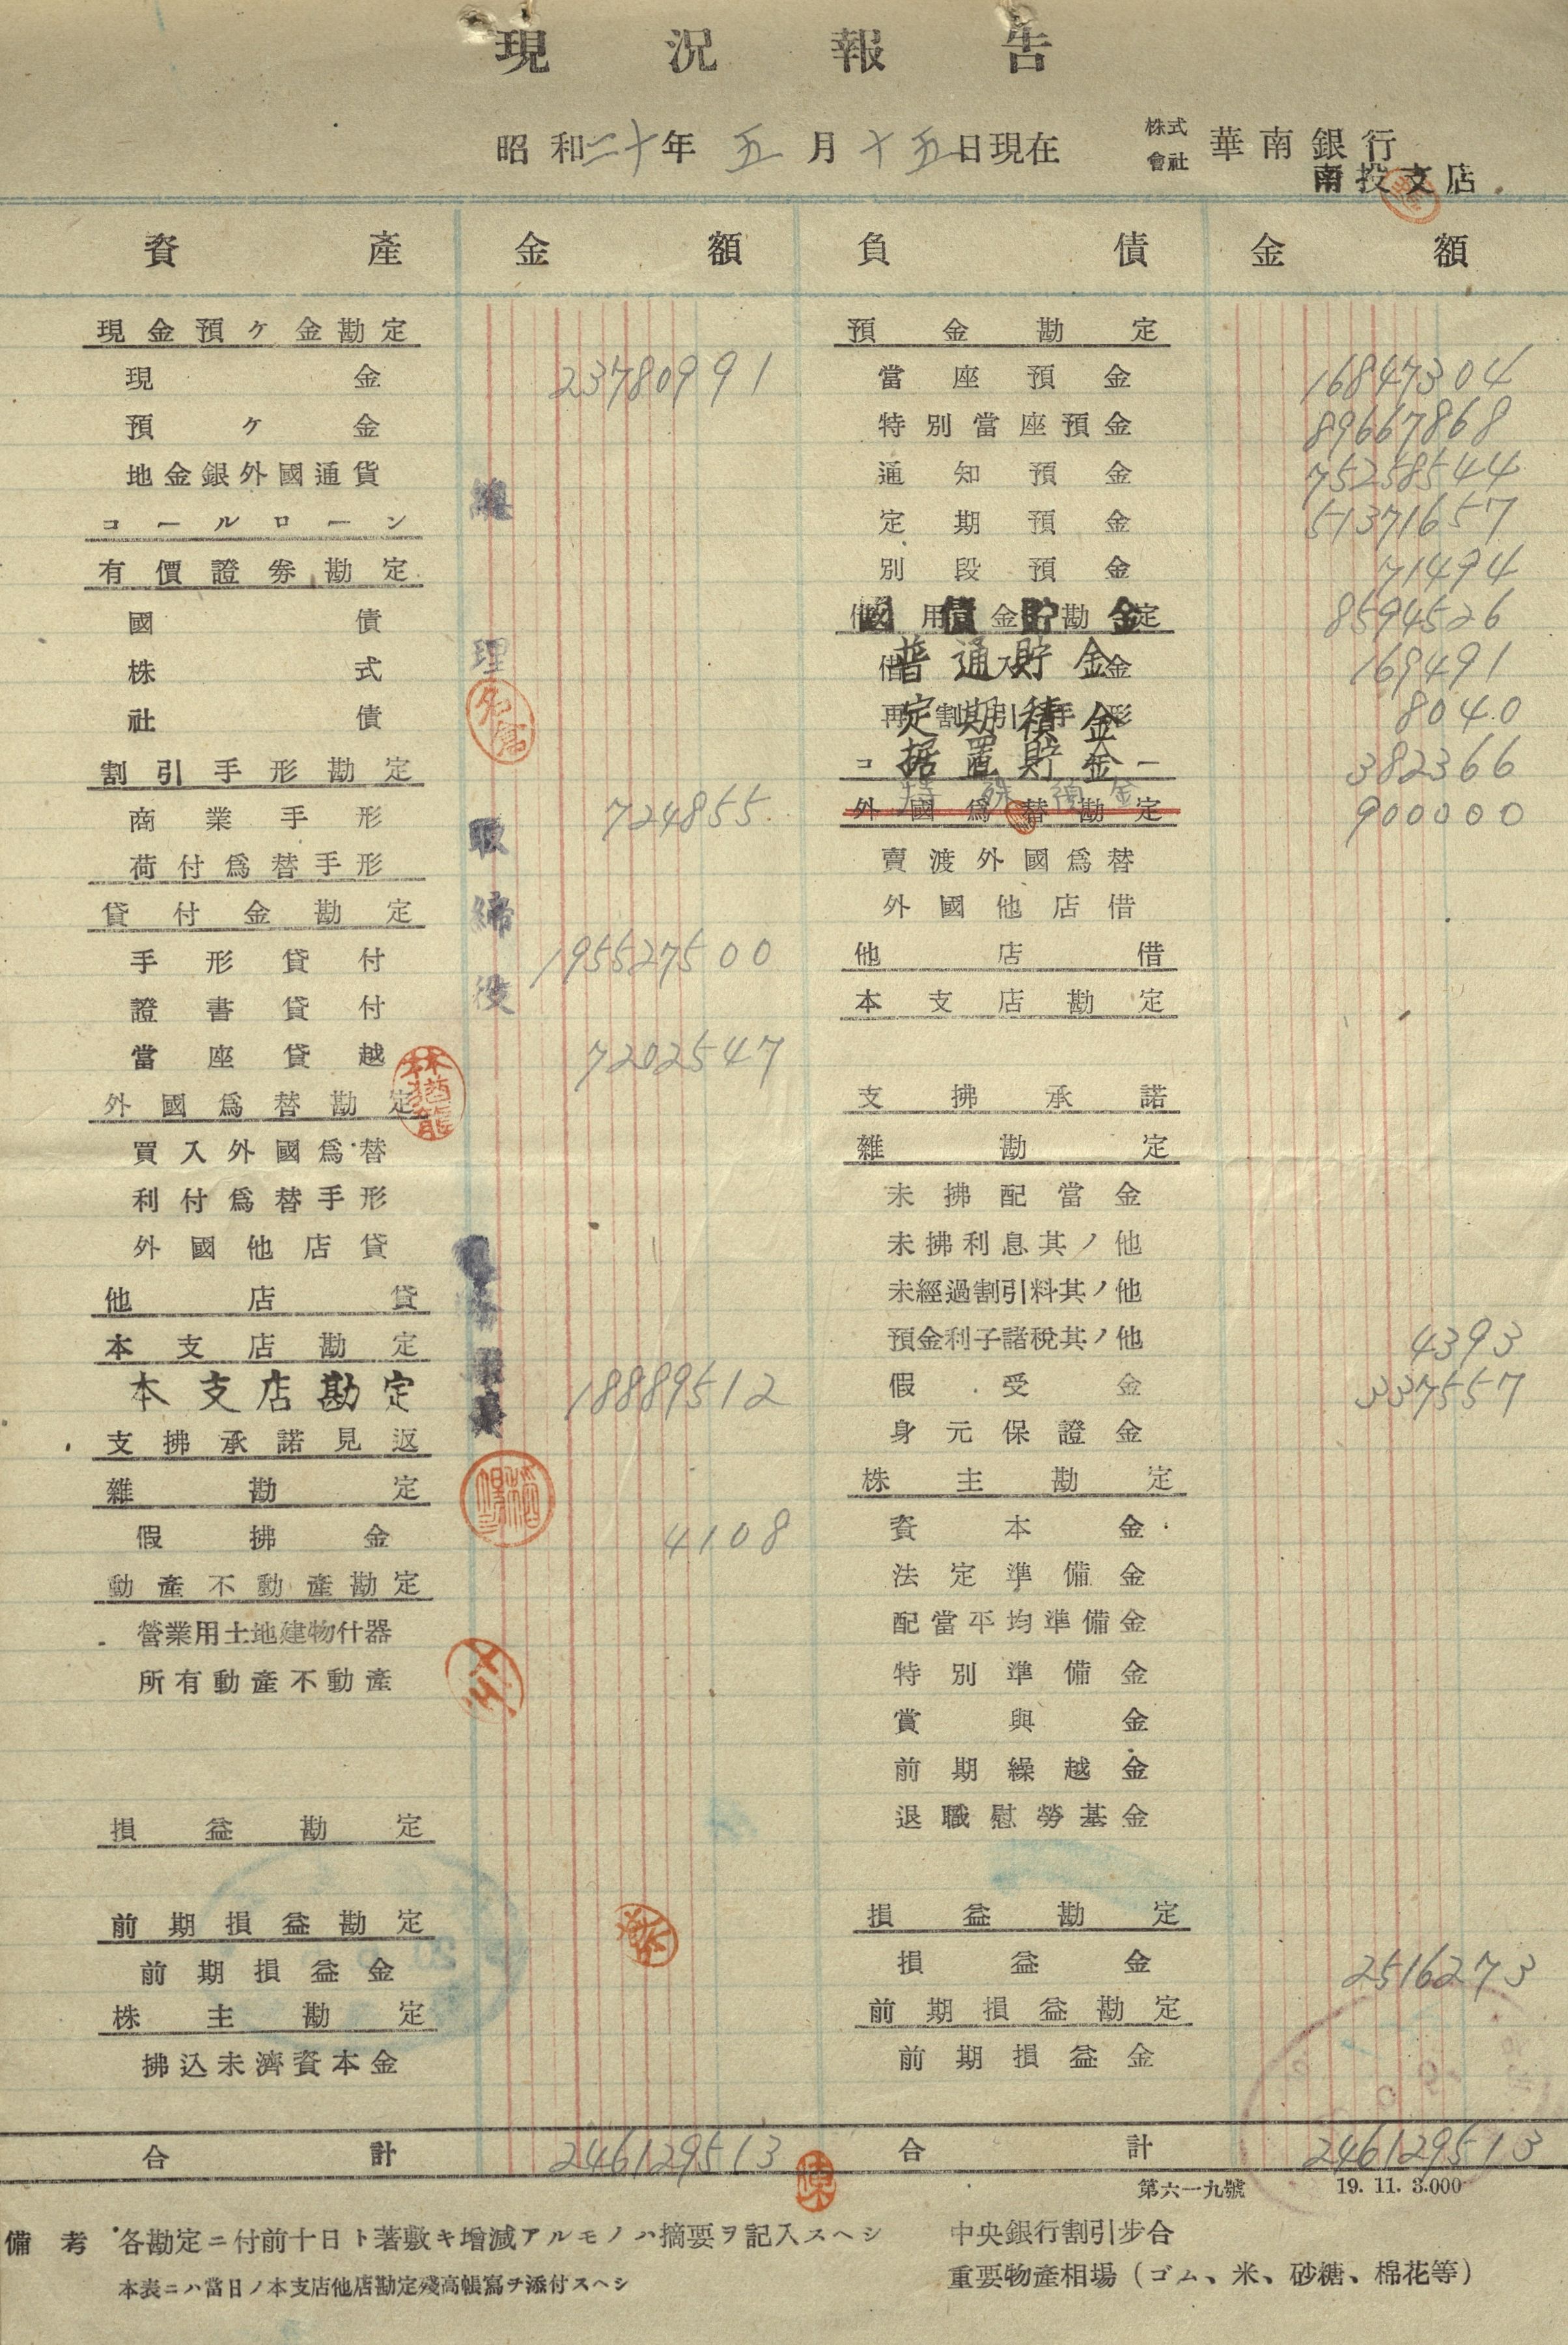 現況報告
昭和二十年五月十五日現在
株式會社 華南銀行
南投支店
資產 金額
現金預ケ金勘定
現金 23780991
預ケ金
地金銀外國通貨
コールローン
有價證券勘定
國債
株式
社債
割引手形勘定
商業手形 724855
荷付爲替手形
貸付金勘定
手形貸付 195527500
證書貸付
當座貸越 7202547
外國爲替勘定
買入外國爲替
利付爲替手形
外國他店貸
他店貸
本支店勘定
本支店勘定 18889512
支拂承諾見返
雜勘定
假拂金 4108
動產不動產勘定
營業用土地建物什器
所有動產不動產
損益勘定
前期損益勘定
前期損益金
株主勘定
拂込未濟資本金
合計 246129513
理
名倉
取締役
林猶龍
負債 金額
預金勘定
當座預金 16847304
特別當座預金 89667868
通知預金 75258544
定期預金 51371657
別段預金 71494
國債貯金 8594526
普通貯金 169491
定期積金 8040
据置貯金 382366
特殊預金 900000
外國爲替勘定
賣渡外國爲替
外國他店借
他店借
本支店勘定
支拂承諾
雜勘定
未拂配當金
未拂利息其ノ他
未經過割引料其ノ他
預金利子諸稅其ノ他 4393
假受金 337557
身元保證金
株主勘定
資本金
法定準備金
配當平均準備金
特別準備金
賞與金
前期繰越金
退職慰勞基金
損益勘定
損益金 2516273
前期損益勘定
前期損益金
合計 246129513
陳
第六一九號 19. 11. 3.000
備考 各勘定ニ付前十日ト著敷キ增減アルモノハ摘要ヲ記入スヘシ
本表ニハ當日ノ本支店他店勘定殘高帳寫チ添付スヘシ
中央銀行割引步合
重要物產相場（ゴム、米、砂糖、棉花等）